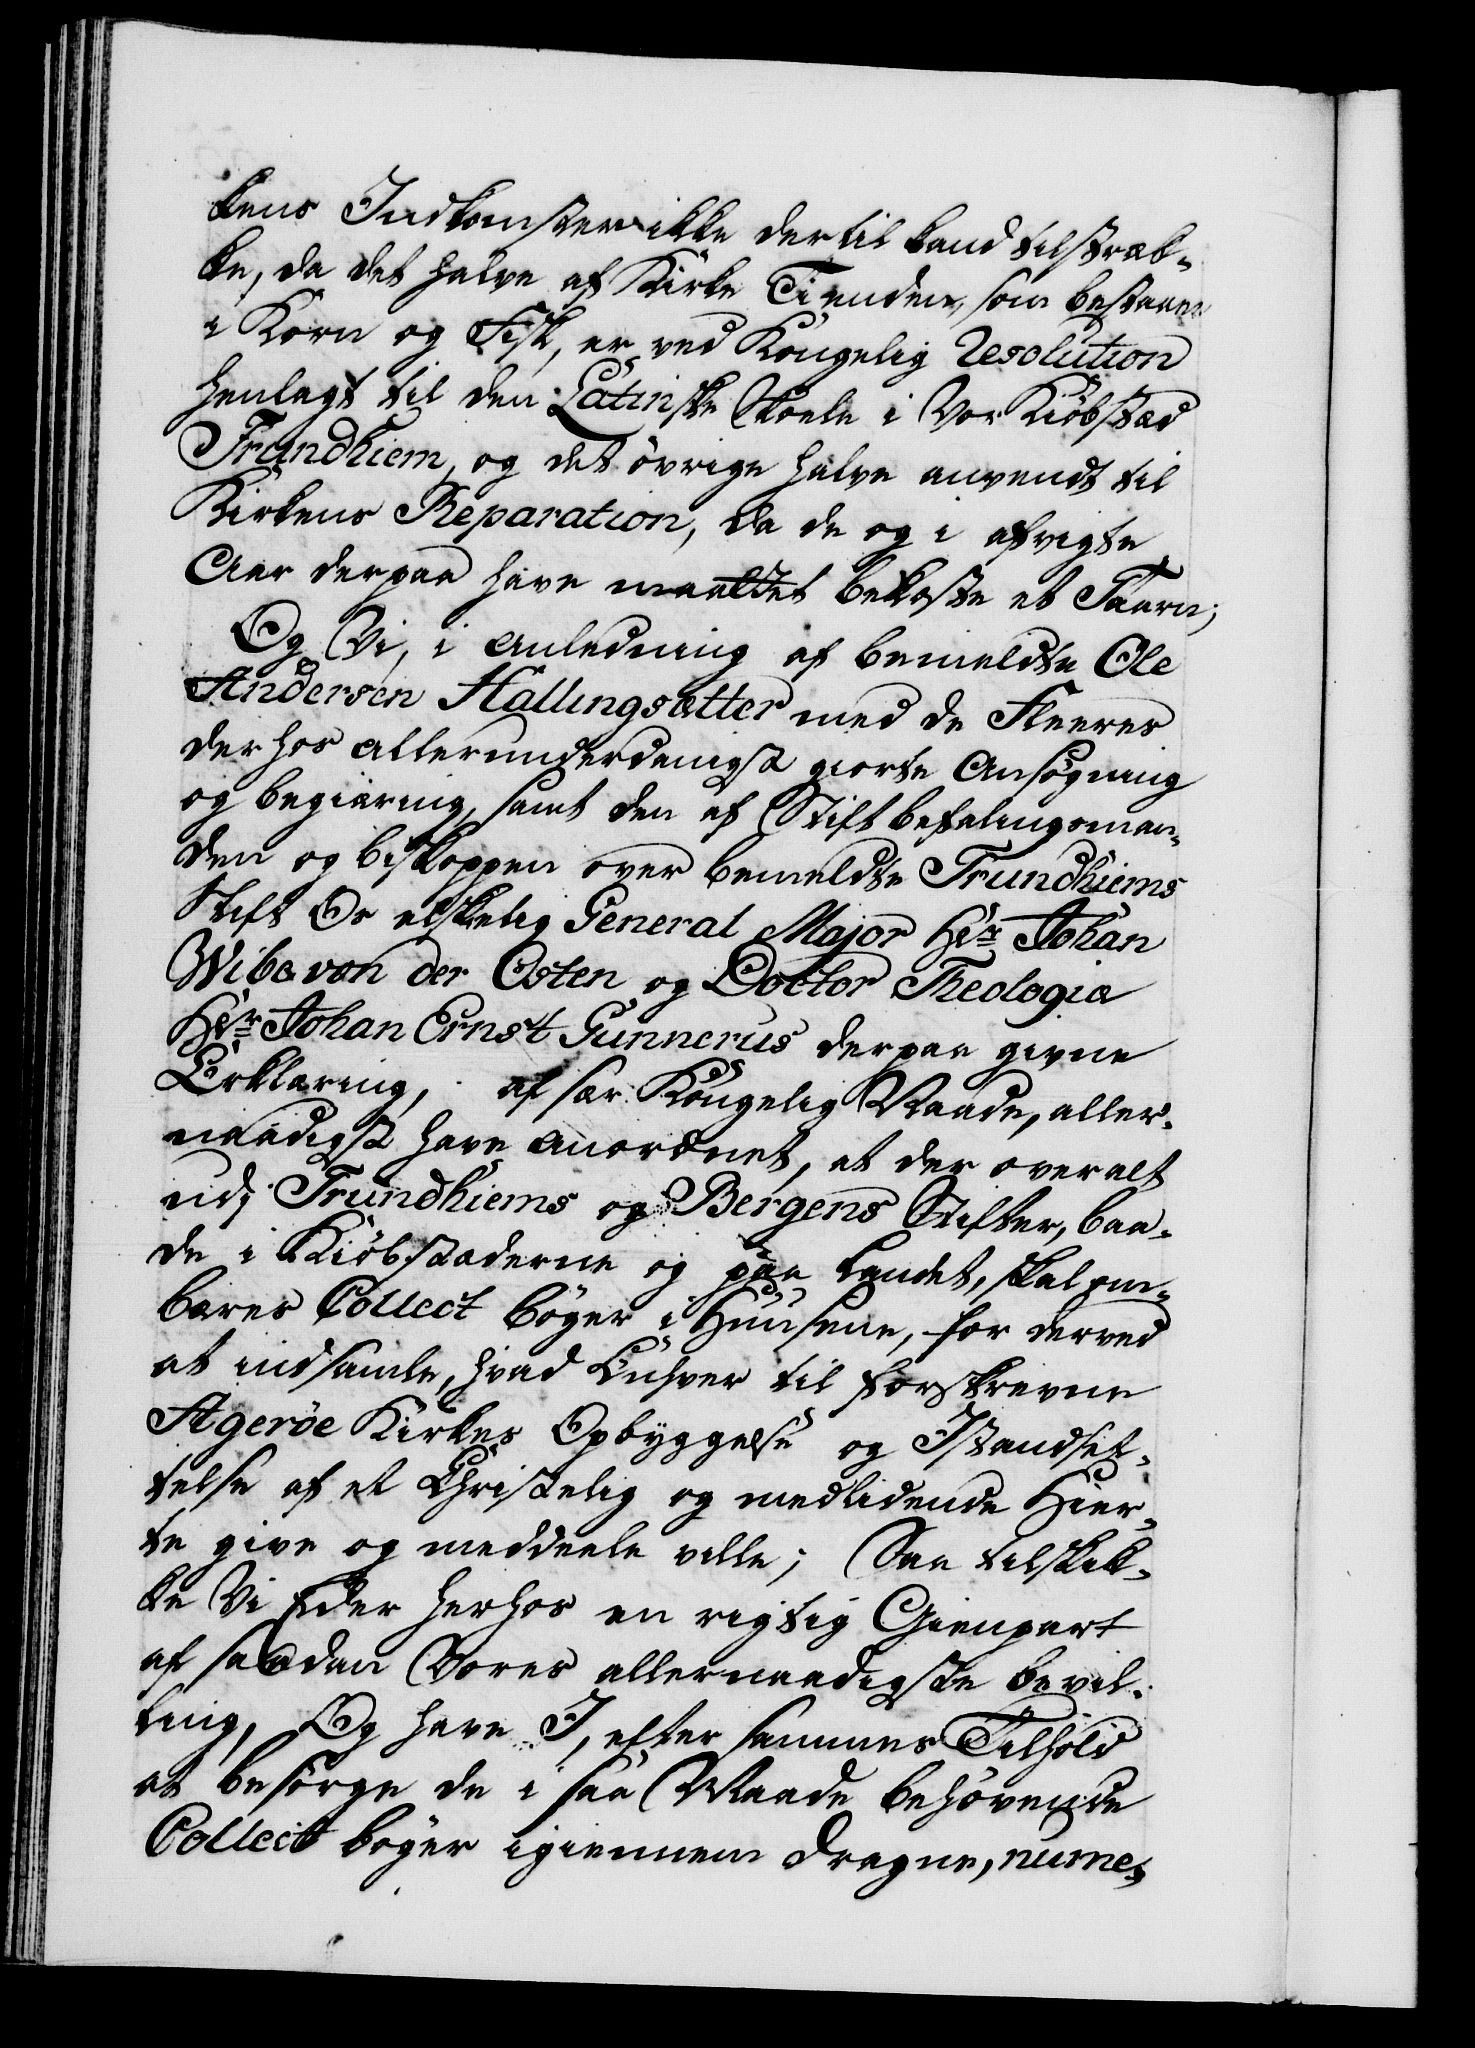 kens Indkomster ikke dertil kand tilstræk-
ke, da det halve af Kirke Tienden, som bestaaer
i Korn og Fisk, er ved Kongelig Resolution
henlagt til den Latinske Skoele i Vor Kiöbstæd
Trundhiem, og det övrige halve anvendt til
Kirkens Reparation, da de og i afvigte
Aar derpaa have maattet bekoste et Taarn;
Og Vi, i Anledning af bemeldte Ole
Andersen Hallingsætter med de Fleeres
derhos allerunderdanigst giorte Ansögning
og begiæring, samt den af Stiftbefalingsman-
den og biskoppen over bemeldte Trundhiems
Stift Os elskelig General Major Hr Johan
Wibe von der Osten og Doctor Theologiæ
Hr Johan Ernst Gunnerus derpaa givne
Erklæring, af sær Kongelig Naade, aller-
naadigst have anordnet, at der overalt
udj Trundhiems og Bergens Stifter, baa-
de i Kiöbstæderne og paa Landet, skal om-
bæres Collect böger i Huusene, for derved
at indsamle, hvad Enhver til forskrevne
Ageröe Kirkes Opbyggelse og Istandset-
telse af et Christelig og medlidende Hier-
te give og meddeele ville; Saa tilskik-
ke Vi Eder herhos en rigtig Gienpart
af saadan Vores allernaadigste bevil-
ling, Og have I, efter sammes Tilhold
at besörge de i saa Maade behövende
Collect böger igiennem dragne, nume-